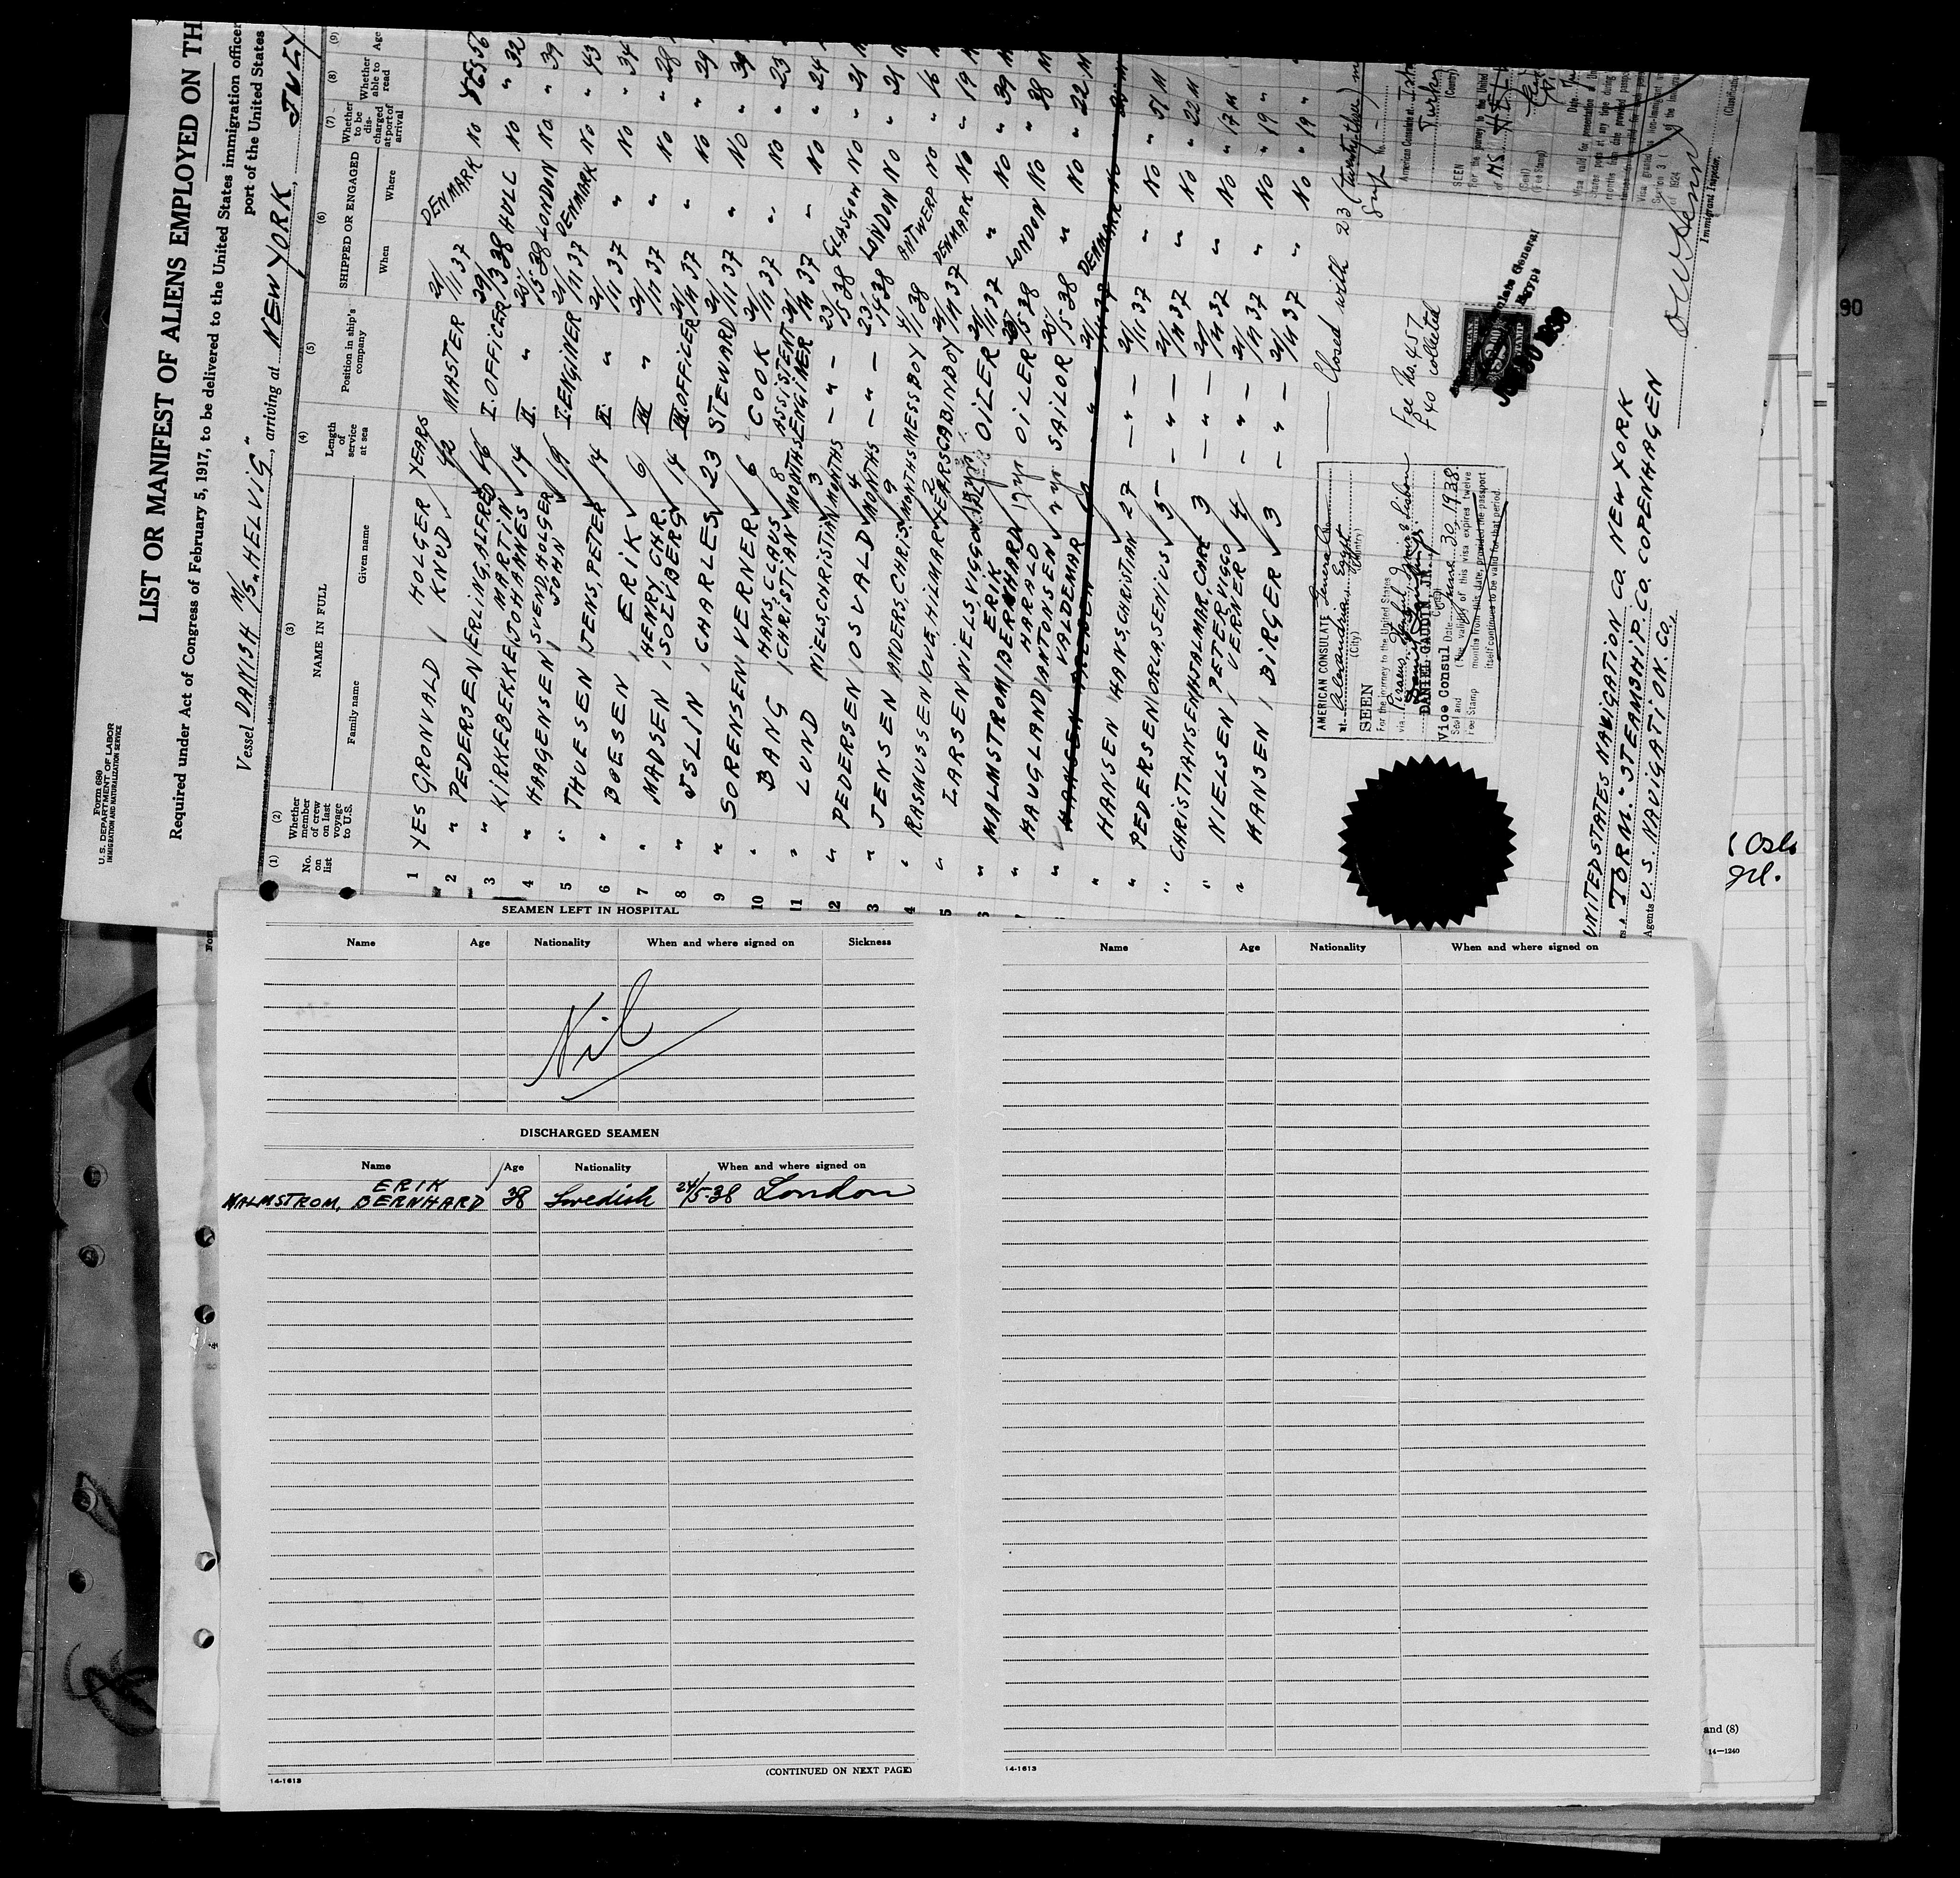 Form 680
U. S. DEPARTMENT OF LABOR
IMMIGRATION AND NATURALIZATION SERVICE
LIST OR MANIFEST OF ALIENS EMPLOYED ON TH
Required under Act of Congress of February 5, 1917, to be delivered to the United States immigration officer
port of the United States
Vessel DANISH M/S. "HELVIG", arriving at NEW YORK, JULY
(1) (2) (3) (4) (5) (6) (7) (8) (9)
No. on list
Whether member of crew on last voyage to U.S.
NAME IN FULL
Family name Given name
Length of service at sea
Position in ship's company
SHIPPED OR ENGAGED
When Where
Whether to be discharged at port of arrival
Whether able to read
Age
1 YES GRONVALD HOLGER KNUD YEARS 42 MASTER 21/11 37 DENMARK NO YES 56
2 " PEDERSEN ERLING, ALFRED 16 I. OFFICER 29/3 38 HULL NO " 32
3 " KIRKEBEKKE MARTIN JOHANNES 14 II. " 20/5-38 LONDON NO " 39
4 " HAAGENSEN SVEND, HOLGER JOHN 19 I. ENGINER 21/11 37 DENMARK NO " 43
5 " THUESEN JENS, PETER 14 II. " 21/11 37 " NO " 34
6 " BOESEN ERIK 6 III " 21/11 37 " NO " 28
7 " MADSEN HENRY, CHR. SOLVBERG 14 III. OFFICER 21/11 37 " NO " 29
8 " ISLIN CHARLES 23 STEWARD 21/11 37 " NO " 39
9 " SORENSEN VERNER 6 COOK 21/11 37 " NO " 23
10 " BANG HANS, CLAUS CHRISTIAN 8 MONTHS ASSISTENT ENGINER 21/11 37 " NO " 24
11 " LUND NIELS, CHRISTIAN 3 MONTHS - " - 23/5-38 GLASGOW NO " 21
12 " PEDERSEN OSVALD 4 MONTHS - " - 23/ 38 LONDON NO " 21
3 " JENSEN ANDERS, CHRIS. 9 MONTHS MESSBOY 4/1-38 ANTWERP NO " 16
4 " RASMUSSEN OVE, HILMAR 2 YEARS CABINBOY 21/11 37 DENMARK NO " 19 M
5 " LARSEN NIELS VIGGO OILER 21/11 37 " NO " 39 M
6 " MALMSTROM ERIK BERNHARD 17 yr OILER 5-38 LONDON NO " 38 M
" HAUGLAND HARALD ANTONSEN 7 yr SAILOR 20/5-38 " NO " 22 M
" HANSEN HANS, CHRISTIAN 27 - " - 21/11 37 " NO " 51 M
" PEDERSEN ORLA, SENIUS 5 - " - 21/11 37 " NO " 22 M
" CHRISTIANSEN HJALMAR, CARL 3 - " - 21/11 37 " NO " 17 M
" NIELSEN PETER VIGGO VERNER 4 - " - 21/11 37 " NO " 19 "
" HANSEN BIRGER 3 - " - 21/11 37 " NO " 19 "
Closed with 23 (twenty-three)
AMERICAN CONSULATE General
at Alexandria Egypt
(City) (Country)
SEEN
For the journey to the United States
via
DANIEL GAUDIN JR.
Vice Consul Date June 30, 1938
(The validity of this visa expires twelve
months from this date, provided the passport
itself continues to be valid for that period.
Seal and
Fee Stamp
Fee No. 457
collected
American Consulate at
Turkey
(Country)
SEEN
For the journey to the United
of M/S
(Seal)
(Fee Stamp)
Immigrant Inspector.
UNITED STATES NAVIGATION CO. NEW YORK
"TORM." STEAMSHIP. CO. COPENHAGEN
Agents U. S. NAVIGATION. CO.,
90
SEAMEN LEFT IN HOSPITAL
Name Age Nationality When and where signed on Sickness
Nil
DISCHARGED SEAMEN
Name Age Nationality When and where signed on
ERIK
MALMSTROM, BERNHARD 38 Swedish 24/5-38 London
14-1613
(CONTINUED ON NEXT PAGE)
Name Age Nationality When and where signed on
14-1613
and (8)
14—1240